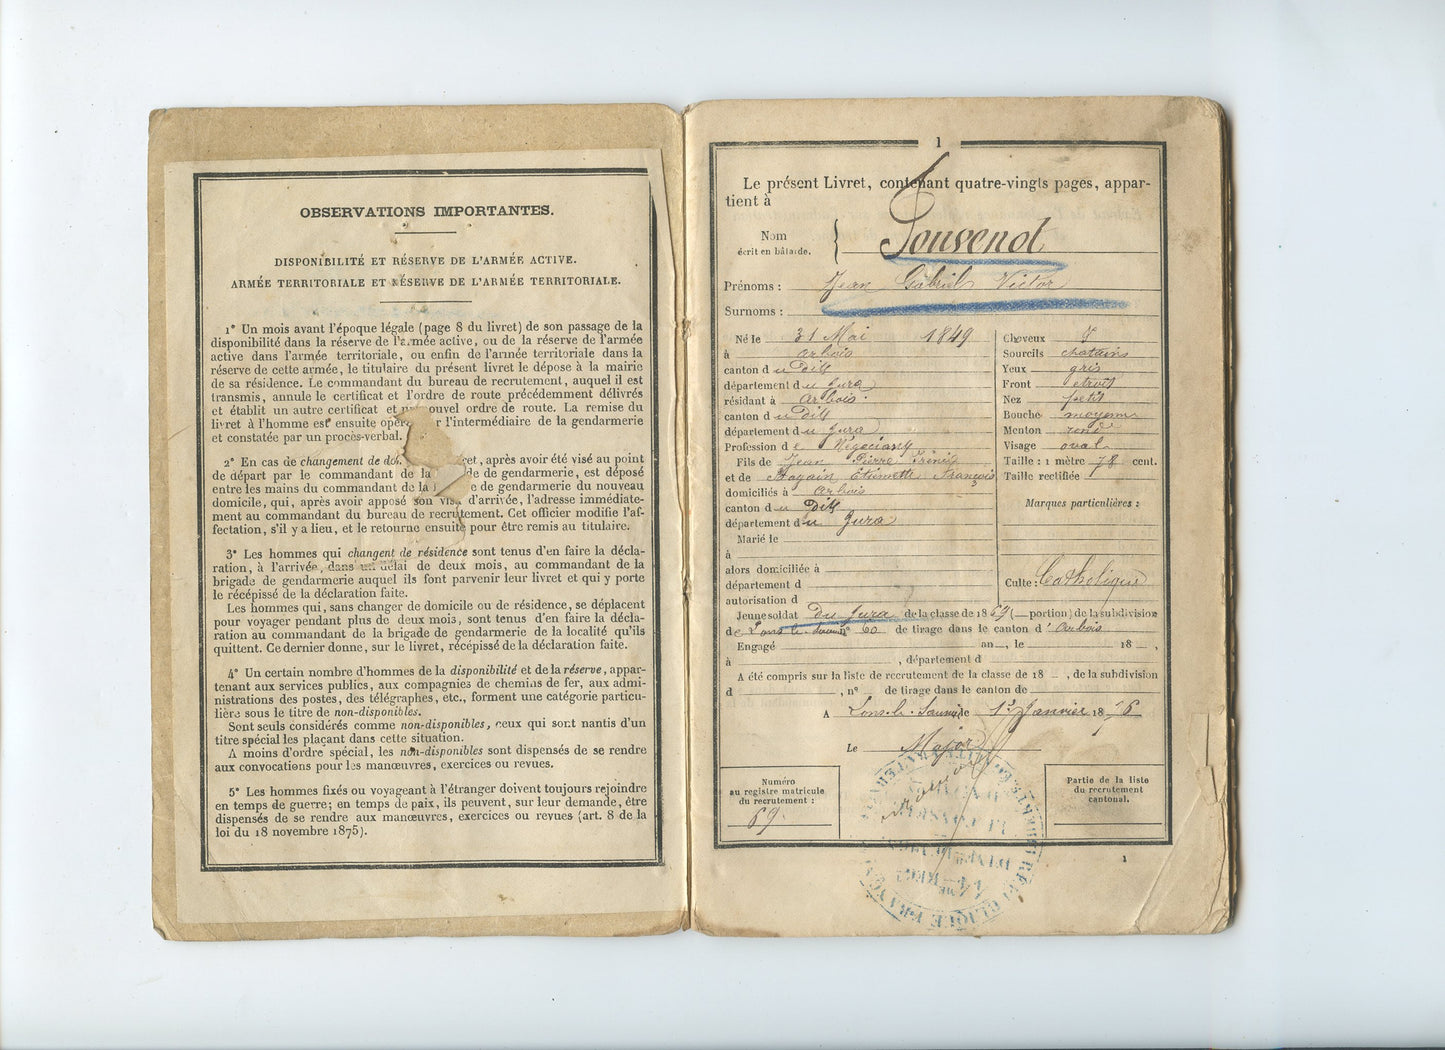 OBSERVATIONS IMPORTANTES.
DISPONIBILITÉ ET RÉSERVE DE L'ARMÉE ACTIVE.
ARMÉE TERRITORIALE ET RÉSERVE DE L'ARMÉE TERRITORIALE.
1° Un mois avant l'époque légale (page 8 du livret) de son passage de la
disponibilité dans la réserve de l'armée active, ou de la réserve de l'armée
active dans l'armée territoriale, ou enfin de l'armée territoriale dans la
réserve de cette armée, le titulaire du présent livret le dépose à la mairie
de sa résidence. Le commandant du bureau de recrutement, auquel il est
transmis, annule le certificat et l'ordre de route précédemment délivrés
et établit un autre certificat et ouvel ordre de route. La remise du
livret à l'homme est ensuite opér r l'intermédiaire de la gendarmerie
et constatée par un procès-verbal.
2° En cas de changement de do et, après avoir été visé au point
de départ par le commandant de la de de gendarmerie, est déposé
entre les mains du commandant de la e de gendarmerie du nouveau
domicile, qui, après avoir apposé son visa d'arrivée, l'adresse immédiate-
ment au commandant du bureau de recrutement. Cet officier modifie l'af-
fectation, s'il y a lieu, et le retourne ensuite pour être remis au titulaire.
3° Les hommes qui changent de résidence sont tenus d'en faire la décla-
ration, à l'arrivée, dans un délai de deux mois, au commandant de la
brigade de gendarmerie auquel ils font parvenir leur livret et qui y porte
le récépissé de la déclaration faite.
Les hommes qui, sans changer de domicile ou de résidence, se déplacent
pour voyager pendant plus de deux mois, sont tenus d'en faire la décla-
ration au commandant de la brigade de gendarmerie de la localité qu'ils
quittent. Ce dernier donne, sur le livret, récépissé de la déclaration faite.
4° Un certain nombre d'hommes de la disponibilité et de la réserve, appar-
tenant aux services publics, aux compagnies de chemins de fer, aux admi-
nistrations des postes, des télégraphes, etc., forment une catégorie particu-
lière sous le titre de non-disponibles.
Sont seuls considérés comme non-disponibles, ceux qui sont nantis d'un
titre spécial les plaçant dans cette situation.
A moins d'ordre spécial, les non-disponibles sont dispensés de se rendre
aux convocations pour les manœuvres, exercices ou revues.
5° Les hommes fixés ou voyageant à l'étranger doivent toujours rejoindre
en temps de guerre; en temps de paix, ils peuvent, sur leur demande, être
dispensés de se rendre aux manœuvres, exercices ou revues (art. 8 de la
loi du 18 novembre 1875).
1
Le présent Livret, contenant quatre-vingts pages, appar-
tient à
Nom
écrit en bâtarde. } Jouvenot
Prénoms : Jean Gabriel Victor
Surnoms :
Né le 31 Mai 1849
à arbois
canton du Dit
département du Jura
résidant à Arbois.
canton du Dit
département du Jura
Profession de Négociant
Fils de Jean Pierre
et de Étiennette François
domiciliés à arbois
canton du Dit
département du Jura
Marié le
à
alors domiciliée à
département d
autorisation d
Cheveux
Sourcils chatains
Yeux gris
Front etroit
Nez petit
Bouche moyenne
Menton rond
Visage oval
Taille : 1 mètre 78 cent.
Taille rectifiée
Marques particulières :
Culte : Catholique
Jeune soldat Du Jura de la classe de 1869 ( portion) de la subdivision
de Lons le Saunier n° 60 de tirage dans le canton d'arbois
Engagé an , le 18 ,
à , département d
A été compris sur la liste de recrutement de la classe de 18 , de la subdivision
d , n° de tirage dans le canton de
A Lons-le-Saunier le 1er Janvier 1876
Le Major
Numéro
au registre matricule
du recrutement :
69.
Partie de la liste
du recrutement
cantonal.
1